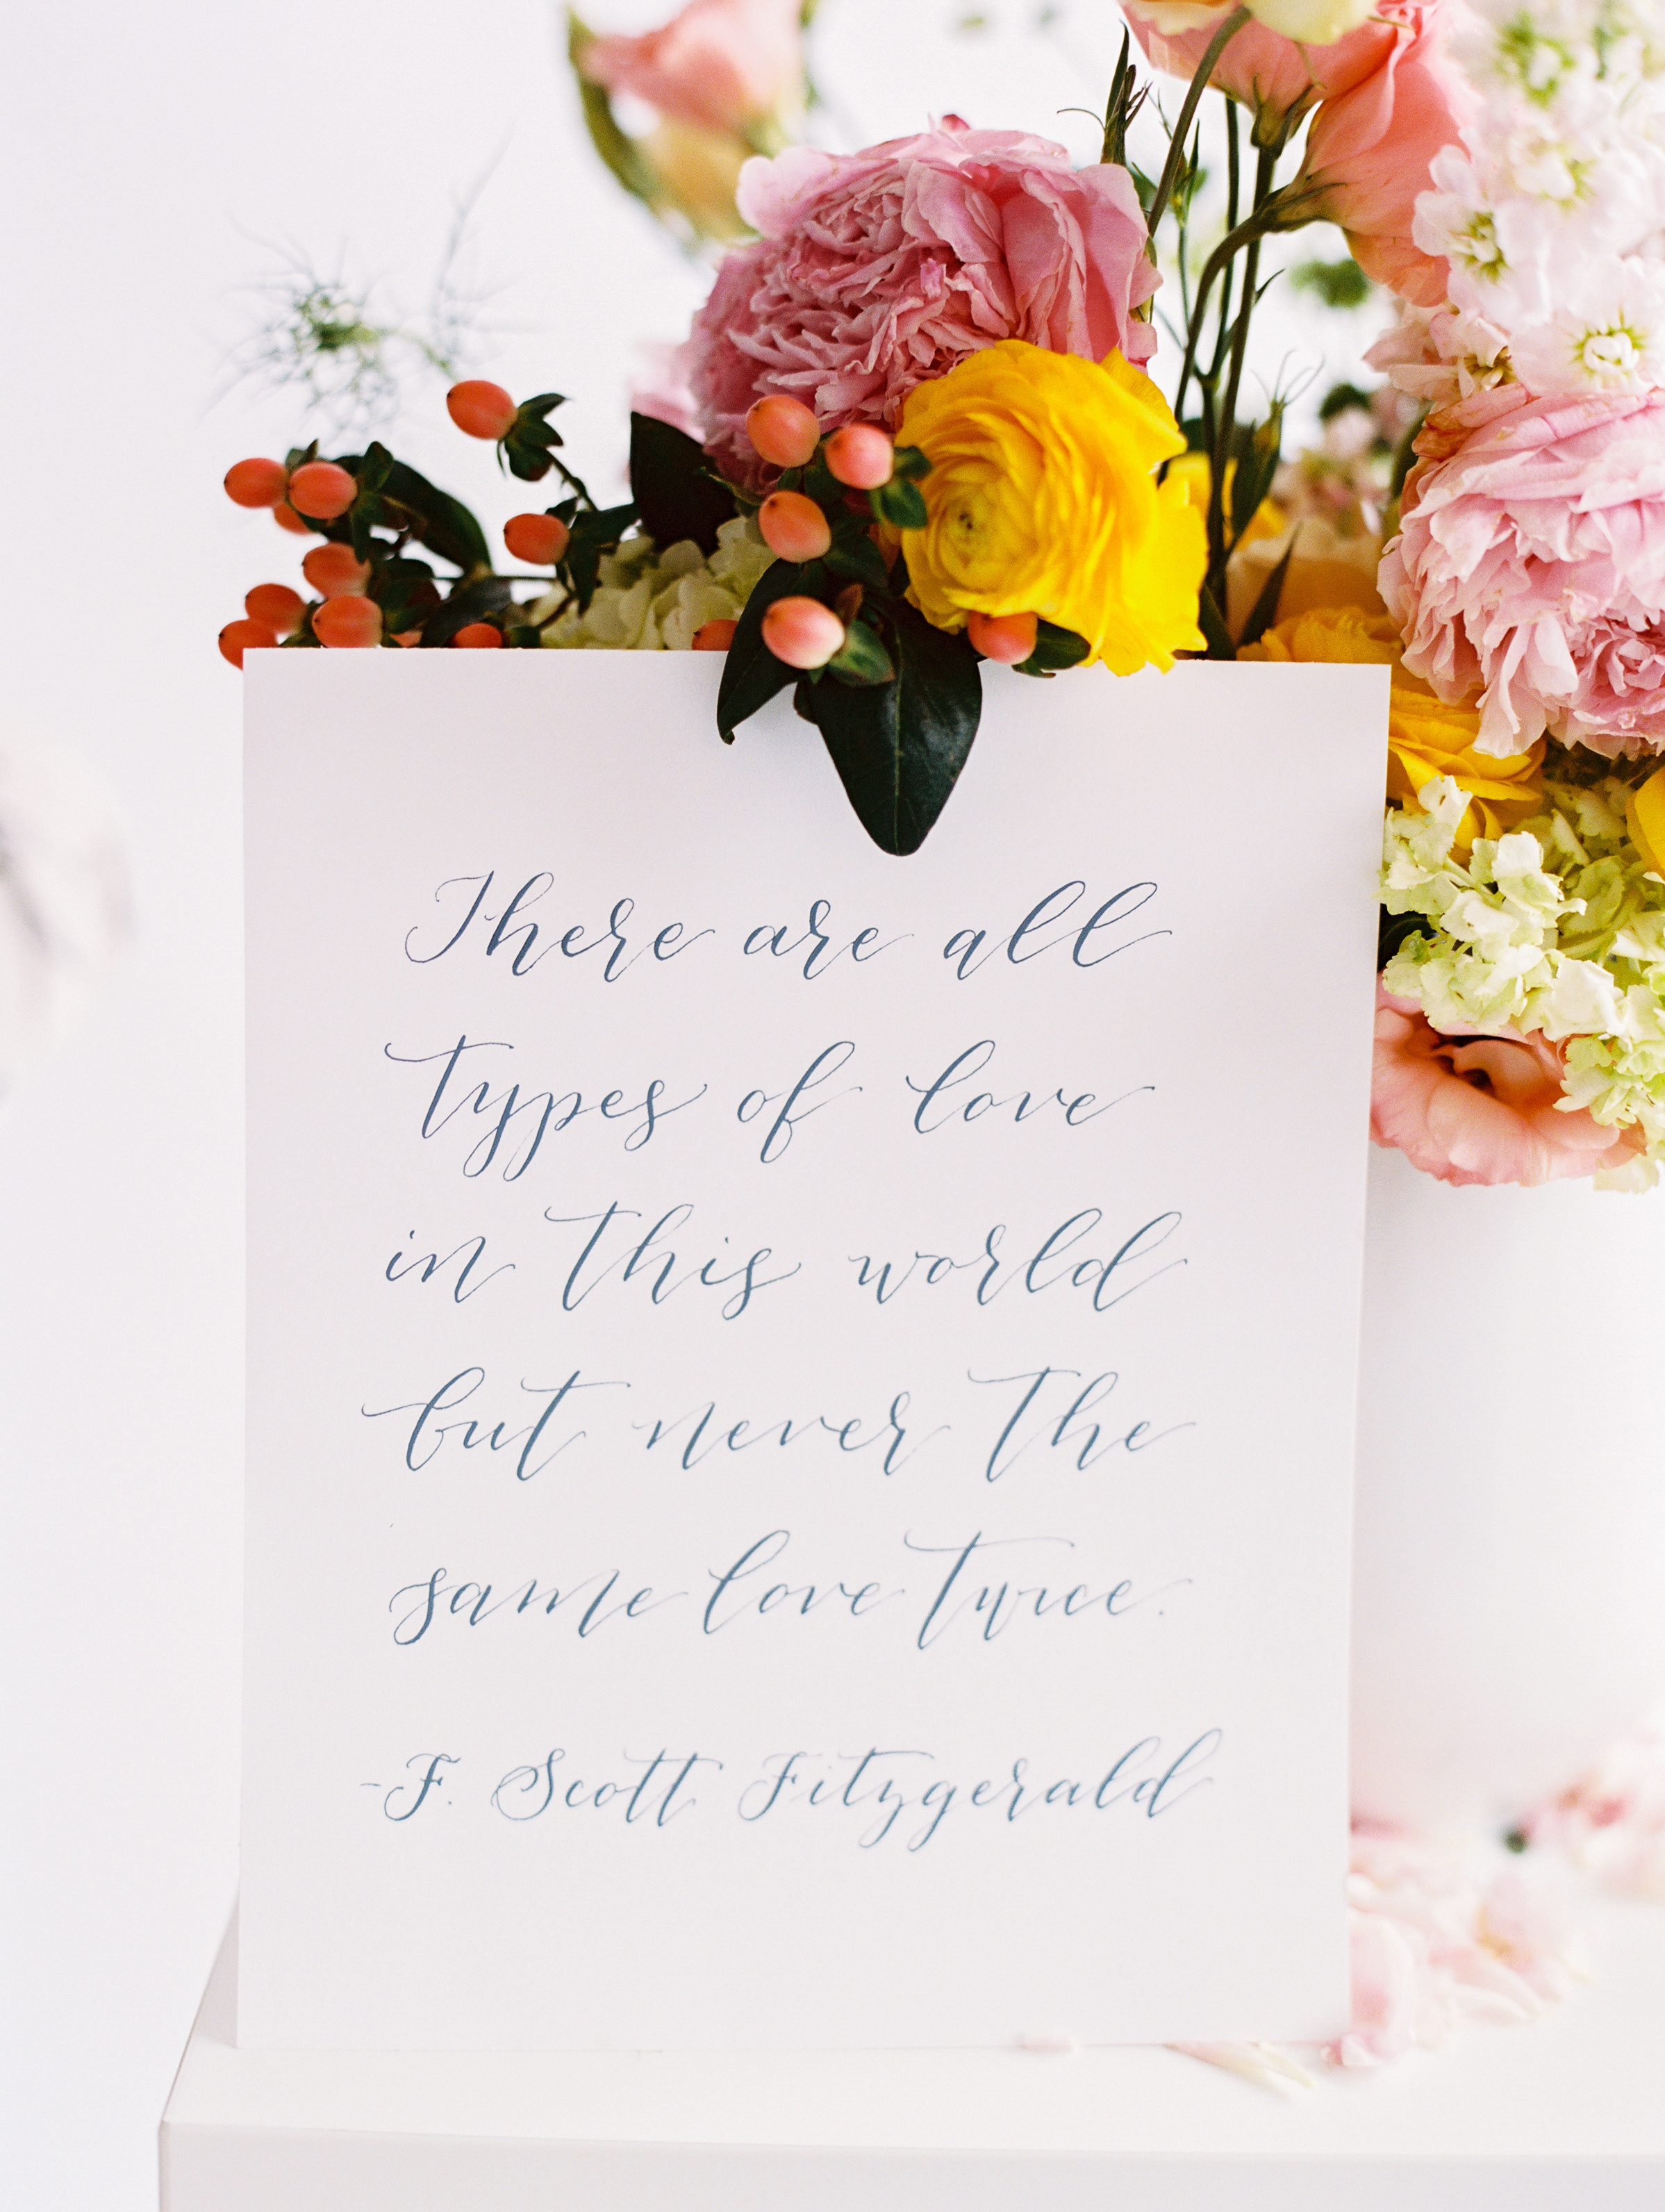 There are all
types of love
in this world
but never the
same love twice.
-F. Scott Fitzgerald